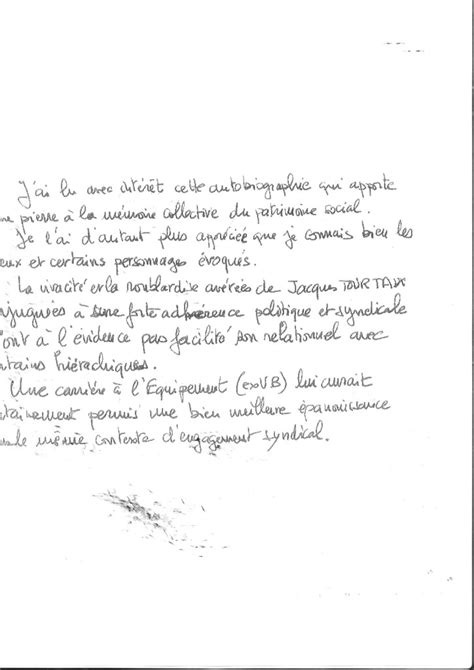 J'ai lu avec intérêt cette autobiographie qui apporte
ne pierre à la mémoire collective du patrimoine social.
Je l'ai d'autant plus appréciée que je connais bien les
eux et certains personnages évoqués.
La vivacité et la avérées de Jacques TOURTAUX
njuguées à une forte adhérence politique et syndicale
ont à l'évidence pas facilité son relationnel avec
rtains hiérachiques.
Une carrière à l'Equipement (exVB) lui aurait
rtainement permis une bien meilleure épanouissance
le même contexte d'engagement syndical.